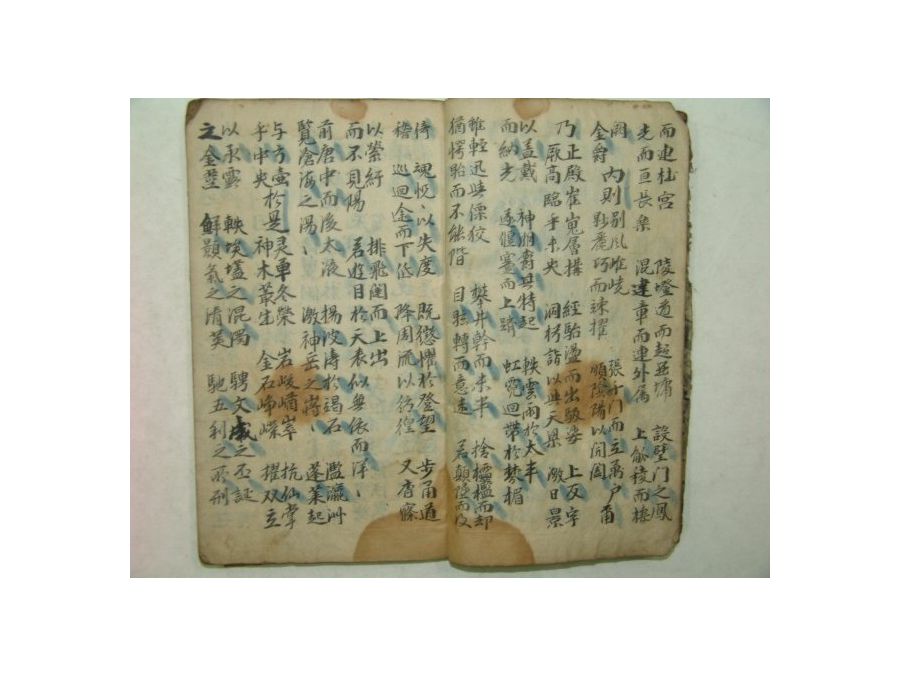 而連桂宮 陵墱道而超西墉 設璧門之鳳
光而亘長樂 混建章而連外屬 上觚稜而棲
闕 內則別風嶕嶢 張千門而立萬戶 爾
金爵 眇麗巧而竦擢 順陰陽以開闔
乃正殿崔嵬層構 經駘盪而出馺娑 上反宇
厥高臨乎未央 洞枍詣以與天梁 激日景
以盖戴 神明鬱其特起 軼雲雨於太半
而納光 遂偃蹇而上躋 虹霓回帶於棼楣
雖輕迅與僄狡 攀井幹而未半 捨欞檻而却
猶愕眙而不能階 目眴轉而意迷 若顛墜而復
倚 魂怳〻以失度 既懲懼於登望 步甬道
稽 巡迴途而下低 降周流以彷徨 又杳窱
以縈紆 排飛闥而上出
而不見陽 若遊目於天表似無依而洋〻
前唐中而後太液 揚波濤於碣石 濫瀛洲
覽滄海之湯〻 激神岳之嶈〻 蓬萊起
与方壺於是灵草冬榮 岩峻崷崒 抗仙掌
乎中央 神木叢生 金石崢嶸 擢双立
以承露 軼埃壒之混濁 騁文成之丕誕
之金莖 鮮顥氣之清英 馳五利之所刑